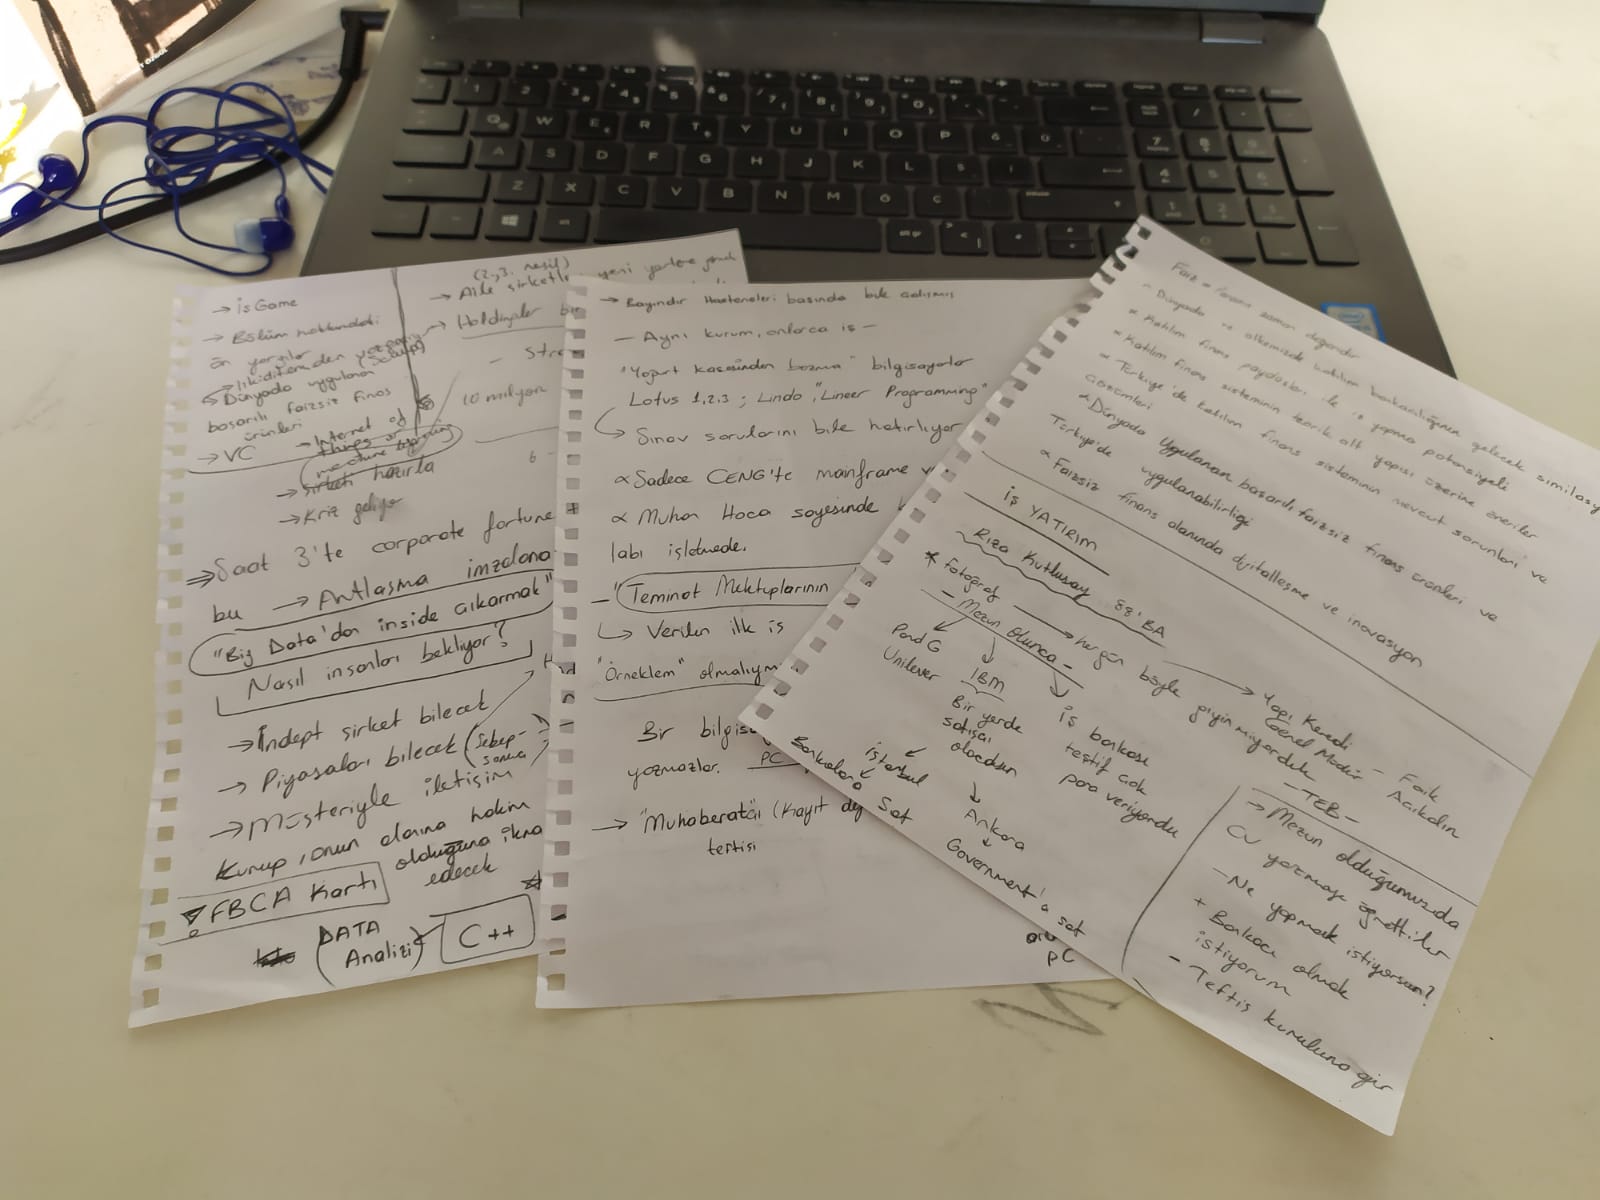 → İsGame
→ Bölüm hakkındaki
ön yargılar
→ likiditeden
→ Dünyada uygulanan
başarılı faizsiz finas
ürünleri
→ VC
→ Internet of
things or
machine learning
→ şirket hazırla
→ Kriz geliyo
(2, 3. nesil)
→ Aile şirketle
yeni
→ Holdingler
- Stra
10 milyon
6 -
⇒ Saat 3'te corporate fortune
bu → Antlaşma imzalana
"Big Data'dan inside çıkarmak"
Nasıl insanları bekliyor?
→ İndept şirket bilecek
→ Piyasaları bilecek (Sebep-
sonuç
→ Müşteriyle iletişim
kurup, onun alanına hakim
olduğuna ikna
edecek
FBCA Kartı
DATA
Analizi
C++
→ Bayındır Hastaneleri başında bile çalışmış
- Aynı kurum, onlarca iş -
"Yoğurt kasesinden bozma" bilgisayarlar
Lotus 1,2,3 ; Lindo "Lineer Programming"
→ Sınav sorularını bile hatırlıyor
∝ Sadece CENG'te mainframe
∝ Muhan Hoca sayesinde
labı işletmede.
- "Teminat Mektuplarının
↳ Verilen ilk iş
"Örneklem" olmalıym
Bir bilgisa
yazmazlar. PC
→ "Muhaberatçı (Kayıt
tertisi
Faiz = Paranın zaman değeridir
∝ Dünyada ve ülkemizde katılım bankacılığının gelecek similasy
∝ Katılım finans paydaşları ile iş yapma potansiyeli
∝ Katılım finans sisteminin teorik alt yapısı üzerine öneriler
∝ Türkiye'de katılım finans sisteminin mevcut sorunları ve
çözümleri
∝ Dünyada Uygulanan başarılı faizsiz finans ürünleri ve
Türkiye'de uygulanabilirliği
∝ Faizsiz finans alanında dijitalleşme ve inovasyon
İŞ YATIRIM
Rıza Kutlusoy 88'BA
* Fotoğraf → hergün böyle giyinmiyorduk
→ Yapı Kredi
Genel Müdür - Faik
Açıkalın
- Mezun Olunca -
P and G
Unilever
IBM
Bir yerde
satışçı
olacaksın
İstanbul
Bankalara Sat
Ankara
Government'a sat
PC
İş bankası
teftiş çok
para veriyordu
- TEB -
→ Mezun olduğumuzda
CV yazmayı öğrettiler
- Ne yapmak istiyorsun?
+ Bankacı olmak
istiyorum
- Teftiş kuruluna gir